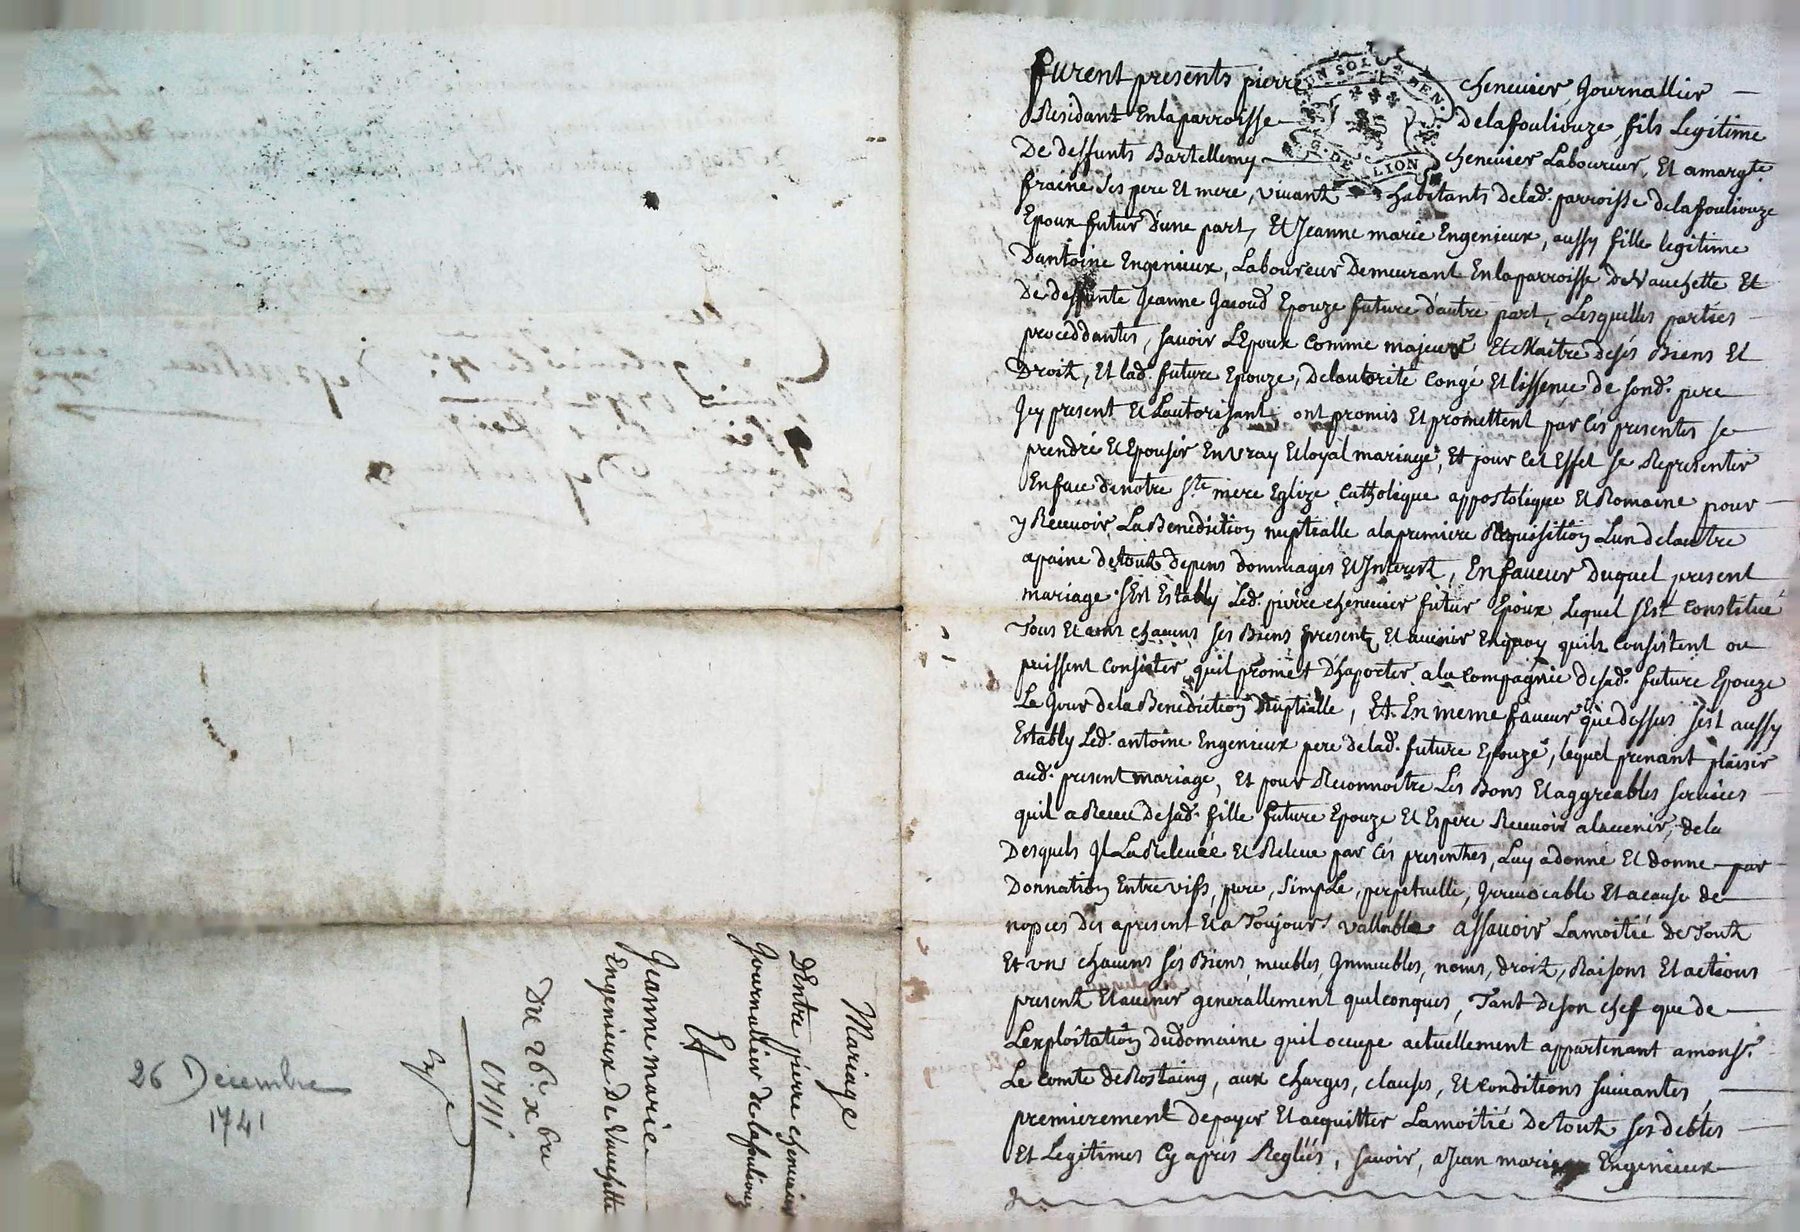 furent presents pierre chenevier Journallier
Residant Enlaparroisse delafouliouze fils Legitime
De deffunts Bartellemy chenevier Laboureur, Et amargte
fraine ses pere Et mere, vivants habitants Delad. parroisse delafouliouze
Epoux futur d'une part, Et Jeanne marie Engenieux, aussy fille legitime
D'antoine Engenieux, Laboureur Demeurant Enlaparroisse De Vauchette Et
De deffunte Jeanne Jacoud Epouze future d'autre part, Lesquelles parties
proceddantes, savoir L'Epoux comme majeure Et Maitre desés Biens Et
Droits, Et lad. future Epouze, Delautorité Congé Et lissence de sond. pere
Jcy present Et Lautorisant ont promis Et promettent par Cés presentes se
prendre Et Epouser En vray Et loyal mariage, Et pour Cet Effet se Representer
En face denotre Ste mere Eglize Catholique appostolique Et Romaine pour
y Recevoir La Benediction nuptialle alapremiere Requisition Lun delautre
apaine detouts depens dommages Et Interest, En faveur Duquel present
mariage s'Est Estably Led. pierre chenevier futur Epoux Lequel s'Est constitué
Tous Et uns chacuns ses Biens presents Et avenir En quoy quils Consistent ou
puissent Consister quil promet D'haporter ala Compagnie desad. future Epouze
Le Jour de la Benediction Nuptialle, Et En meme faveur que dessus s'est aussy
Estably Led. antoine Engenieux pere delad. future Epouze, lequel prenant plaisir
aud. present mariage, Et pour Reconnoitre Lés Bons Et aggreables services
quil a Receu Desad. fille future Epouze Et Espere Recevoir alavenir, dela
Desquels Jl La Relevée Et Releve par Cés presentes, Luy a donné Et donne par
Donnation Entre vifs, pure, simple, perpetuelle, Jrrevocable Et acause de
nopces Des apresent Et a Toujours vallable assavoir Lamoitiée de Touts
Et uns chacuns sés Biens meubles, Jmmeubles, noms, droits, Raisons Et actions
presents Et avenir generallement quelconques, Tant De son chef que de
L'exploitation Dudomaine quil occupe actuellement appartenant amonsr.
Le Comte de Rostaing, aux charges, clauses, Et conditions suivantes,
premierement de payer Et acquitter Lamoitié De touts ses debtes
Et Legitimes Cy apres Reglées, savoir, a Jean marie Engenieux
Mariage
D'Entre pierre chenevier
Journalier delafouliouz
Et
Jeanne marie
Engenieux De Vauchette
Du 26e. xbre
1741
26 Decembre
1741
UN SOL DEN.
G. DE LION